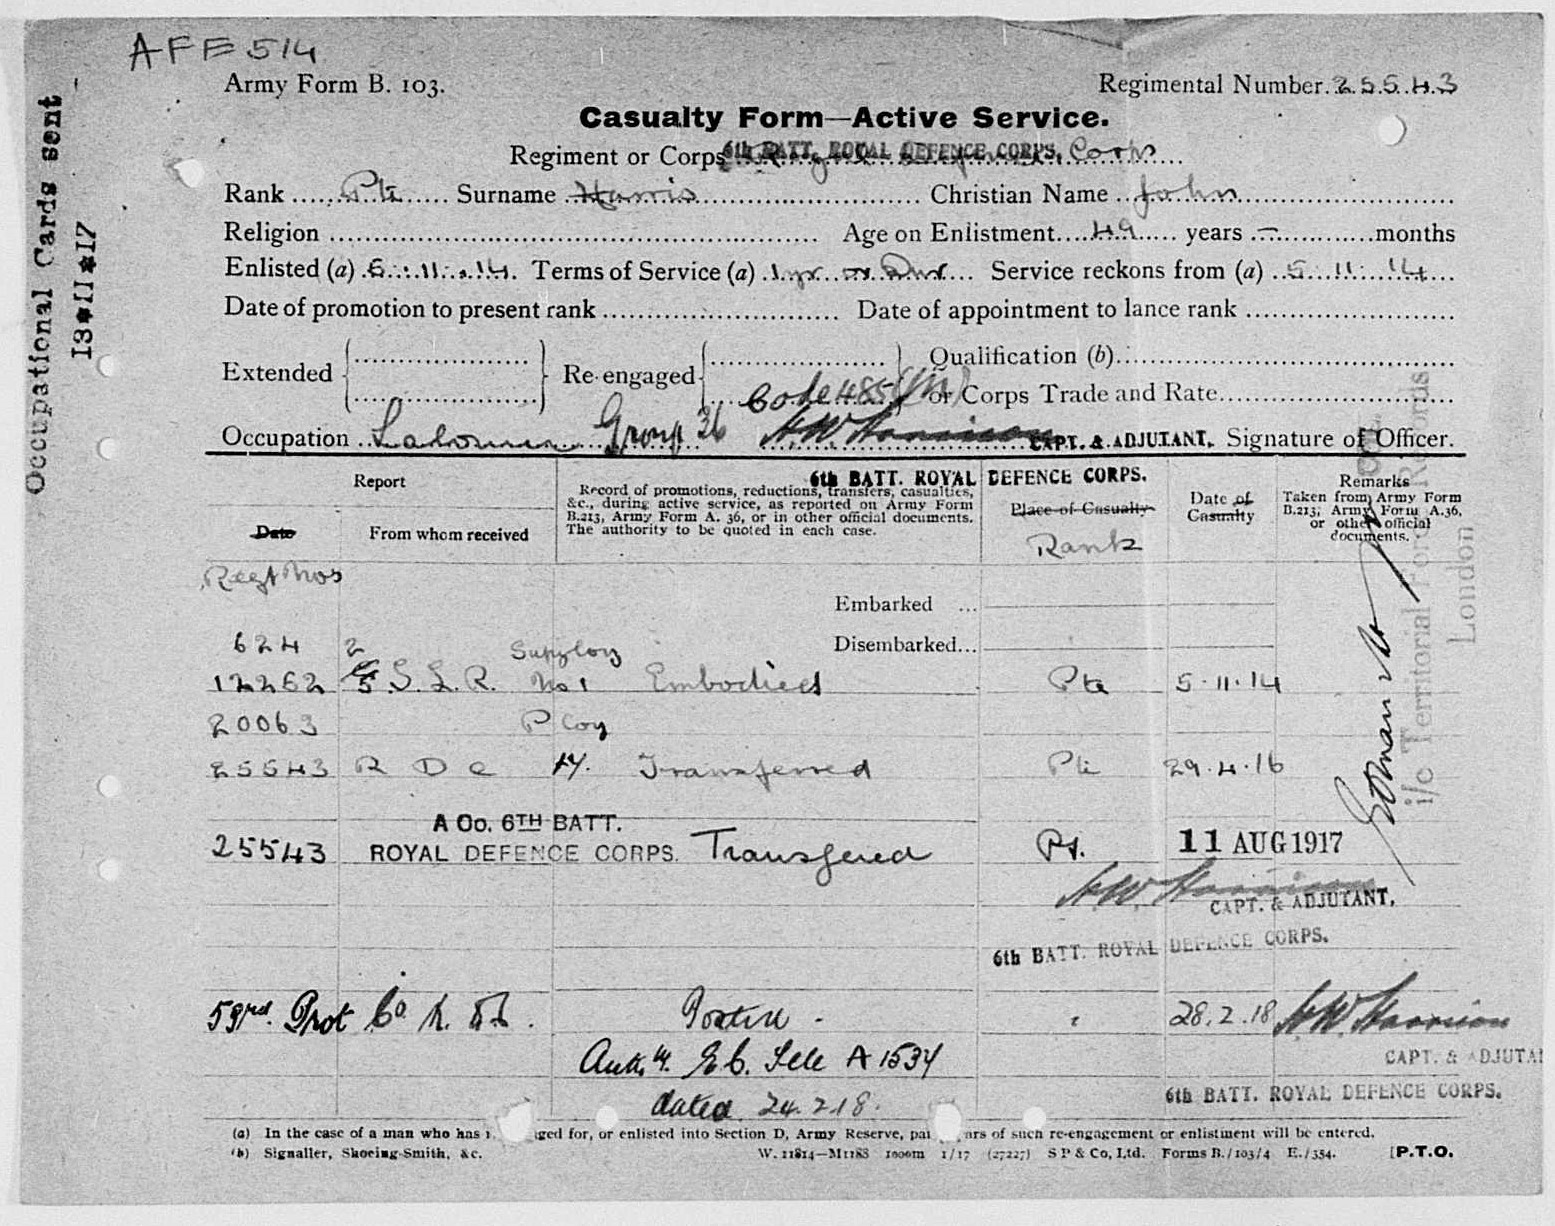 AFE 514
Army Form B. 103.
Regimental Number. 25543
Casualty Form—Active Service.
Regiment or Corps 6th BATT. ROYAL DEFENCE CORPS. Corps
Rank Pte Surname Harris Christian Name John
Religion Age on Enlistment 49 years — months
Enlisted (a) 5.11.14. Terms of Service (a) 1yr or Dur Service reckons from (a) 5 11 14
Date of promotion to present rank Date of appointment to lance rank
Extended Re-engaged Qualification (b)
Code 485 or Corps Trade and Rate
Occupation Labourer Group 36 HW Harrison CAPT. & ADJUTANT. Signature of Officer.
6th BATT. ROYAL DEFENCE CORPS.
Report
Date
From whom received
Record of promotions, reductions, transfers, casualties,
&c., during active service, as reported on Army Form
B.213, Army Form A. 36, or in other official documents.
The authority to be quoted in each case.
Place of Casualty
Rank
Date of
Casualty
Remarks
Taken from Army Form
B.213, Army Form A.36,
or other official
documents.
Regt Nos
Embarked ...
624 2 Suply Coy Disembarked...
12262 5 S. L. R. No 1 Embodied Pte 5.11.14
20063 P Coy
25543 R D C 14. Transferred Pte 29.4.16
A Co. 6TH BATT.
25543 ROYAL DEFENCE CORPS. Transfered Pt. 11 AUG 1917
HW Harrison
CAPT. & ADJUTANT,
6th BATT. ROYAL DEFENCE CORPS.
59rd. Prot Co. R. D.C. Posted - 28.2.18 HW Harrison
Auth y. E.C. Lett A 1534 CAPT. & ADJUTA
dated 24.2.18. 6th BATT. ROYAL DEFENCE CORPS.
(a) In the case of a man who has ged for, or enlisted into Section D, Army Reserve, par ars of such re-engagement or enlistment will be entered.
(b) Signaller, Shoeing-Smith, &c. W. 11814—M1188 1000m 1/17 (27227) S P & Co, Ltd. Forms B./103/4 E./354. [P.T.O.
Occupational Cards sent
13*11*17
i/c Territorial Force Records
London